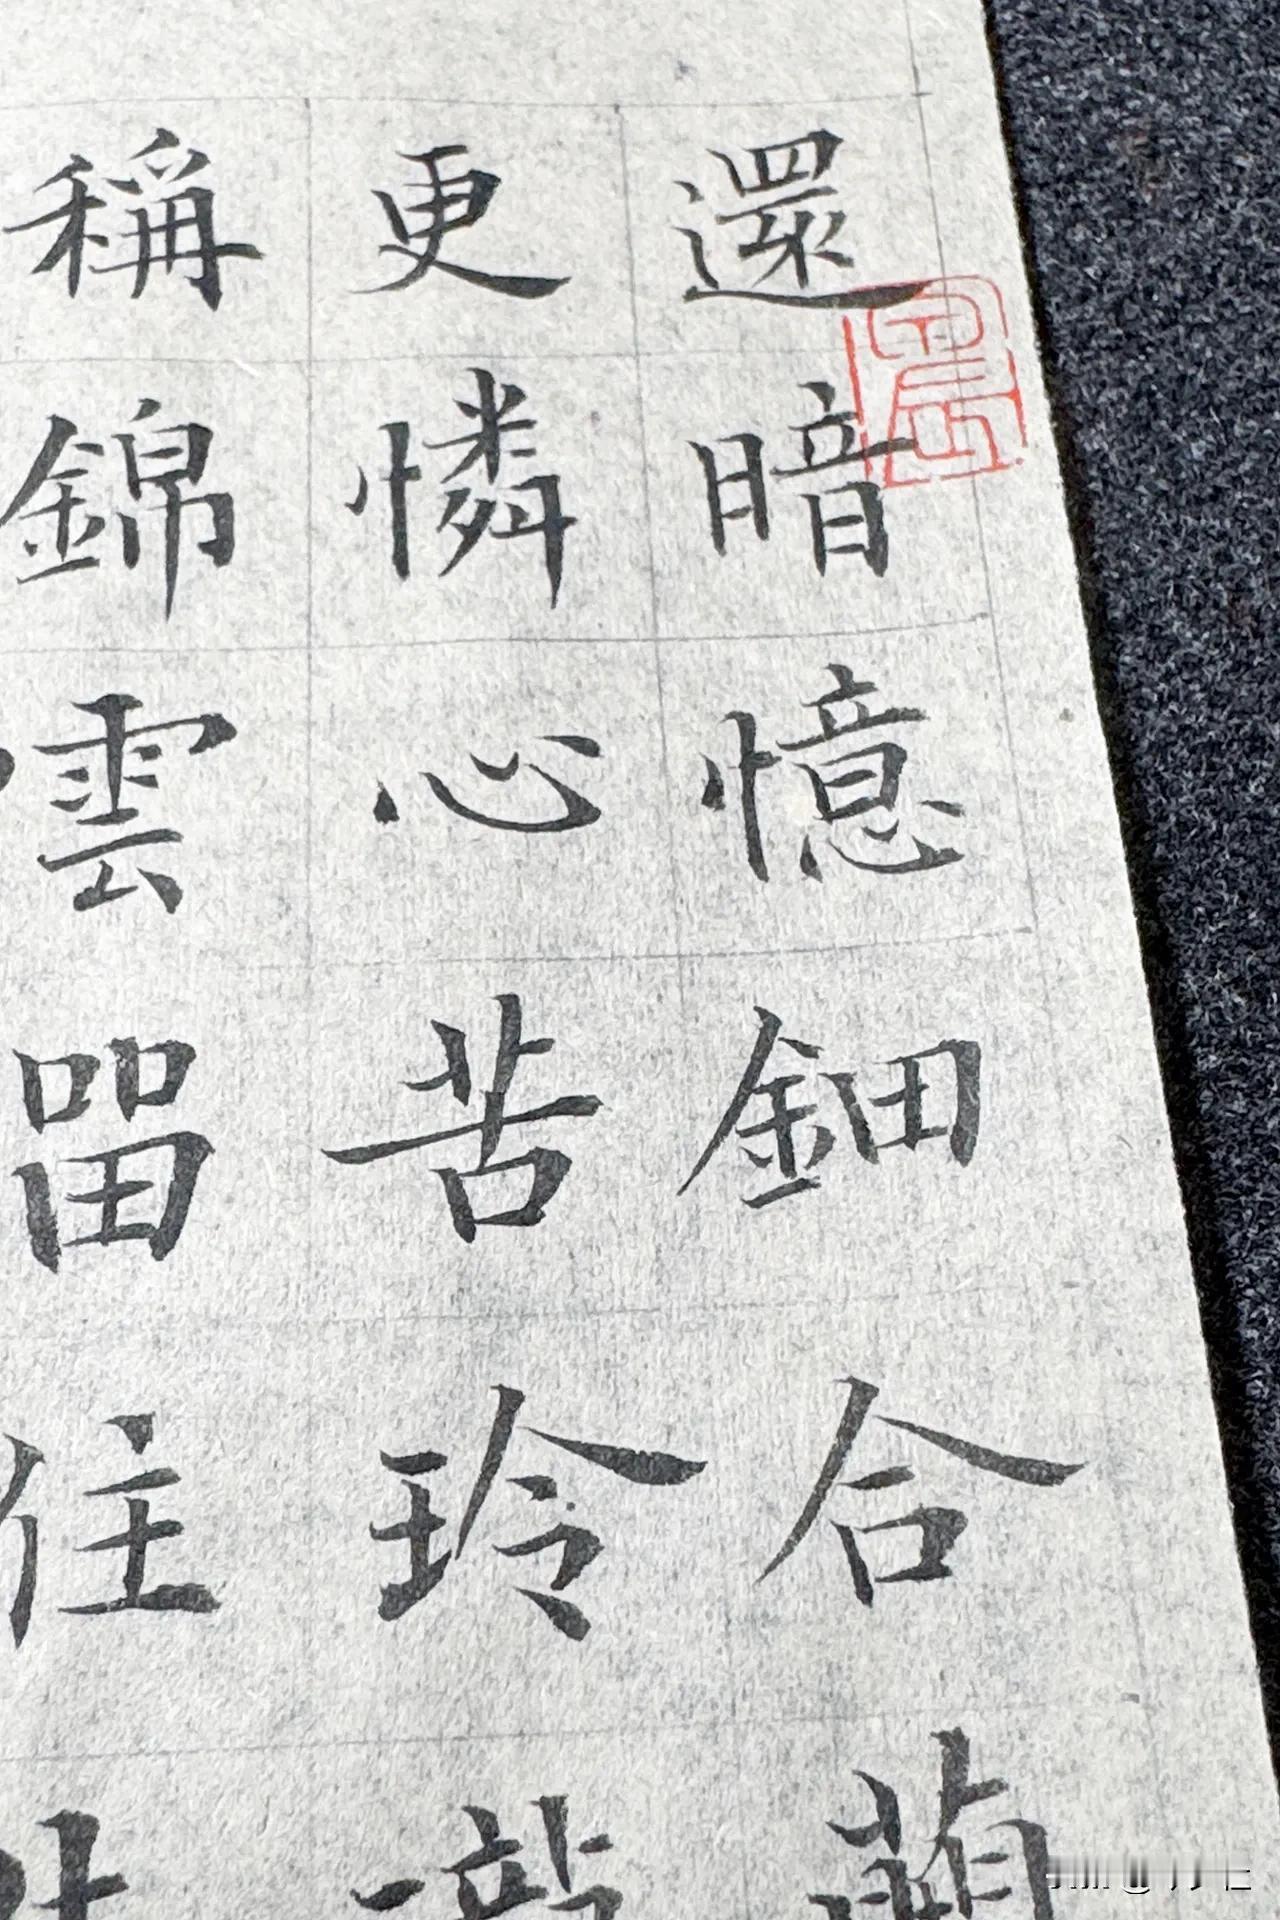 還暗憶鈿合
更憐心苦玲
稱錦雲留住